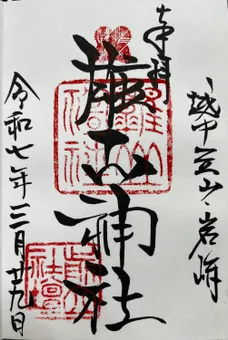 奉拝
越中立山・岩峅
雄山神社
令和七年三月廿九日
前立
社壇